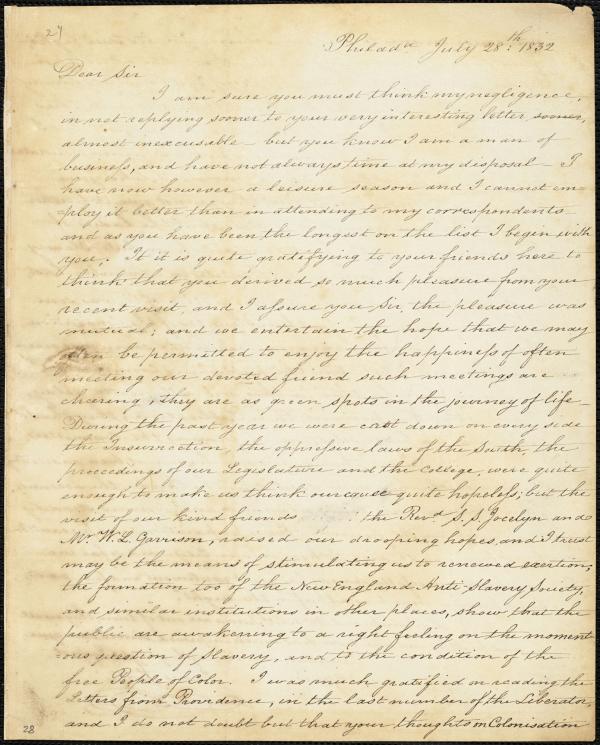 27
Philada July 28th. 1832
Dear Sir
I am sure you must think my negligence,
in not replying sooner to your very interesting letter sooner,
almost inexcusable – but you know I am a man of
business, and have not always time at my disposal – I
have now however a leisure season and I cannot em
ploy it better than in attending to my correspondents
and as you have been the longest on the list I begin with
you. It it is quite gratifying to your friends here to
think that you derived so much pleasure from your
recent visit, and I assure you Sir, the pleasure was
mutual; and we entertain the hope that we may
often be permitted to enjoy the happiness of often
meeting our devoted friend such meetings are
cheering, they are as green spots in the journey of life –
During the past year we were cast down on every side
the Insurrection, the oppressive laws of the South, the
proceedings of our Legislature and the College, were quite
enough to make us think our cause quite hopeless; but the
visit of our kind friends the Revd. S. S. Jocelyn and
Mr. W. L. Garrison, raised our drooping hopes, and I trust
may be the means of stimulating us to renewed exertion;
the formation too of the New England Anti Slavery Society,
and similar institutions in other places, show that the
public are awakening to a right feeling on the moment
ous question of Slavery, and to the condition of the
free People of Color. I was much gratified in reading the
Letters from Providence, in the last number of the Liberator,
and I do not doubt but that your thoughts on Colonisation
28